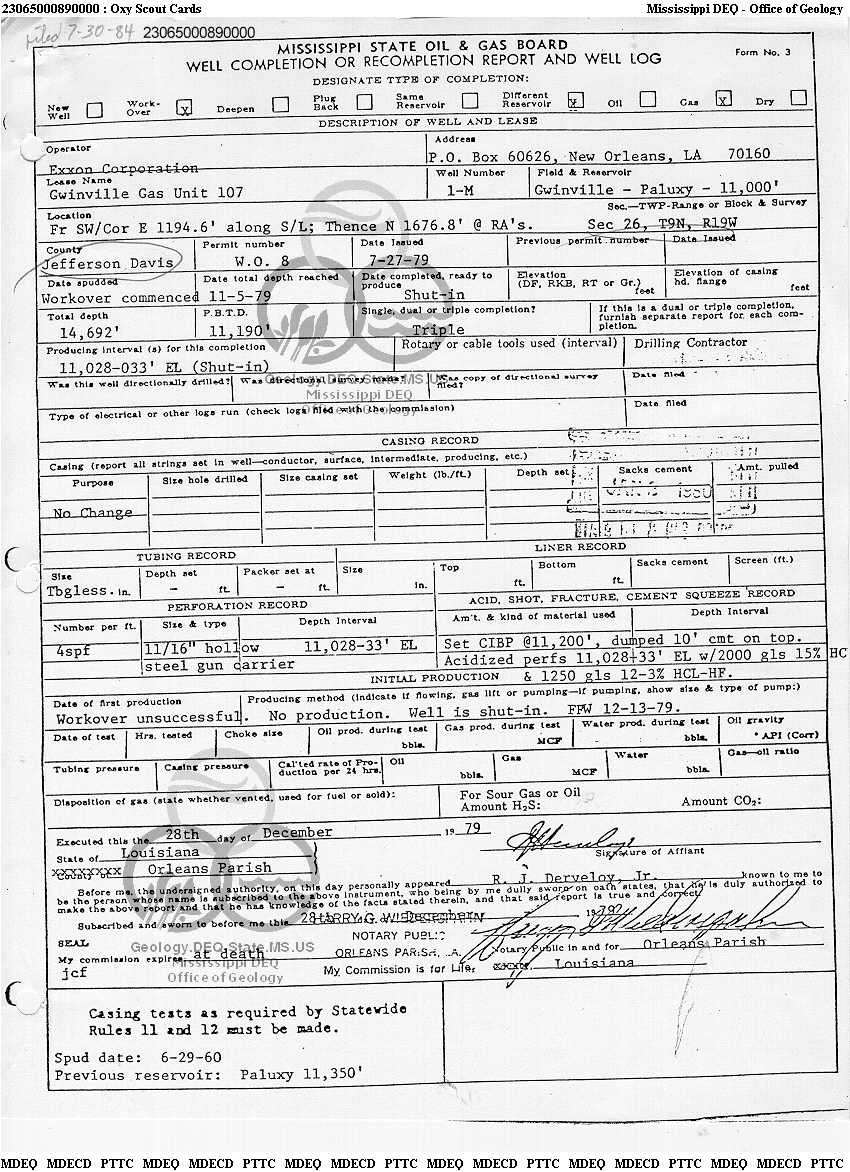 23065000890000 : Oxy Scout Cards Mississippi DEQ - Office of Geology
filed 7-30-84 23065000890000
MISSISSIPPI STATE OIL & GAS BOARD
WELL COMPLETION OR RECOMPLETION REPORT AND WELL LOG Form No. 3
DESIGNATE TYPE OF COMPLETION:
New Well Work-Over X Deepen Plug Back Same Reservoir Different Reservoir X Oil Gas X Dry
DESCRIPTION OF WELL AND LEASE
Operator Address
Exxon Corporation P.O. Box 60626, New Orleans, LA 70160
Lease Name Well Number Field & Reservoir
Gwinville Gas Unit 107 1-M Gwinville - Paluxy - 11,000'
Location Sec.—TWP-Range or Block & Survey
Fr SW/Cor E 1194.6' along S/L; Thence N 1676.8' @ RA's. Sec 26, T9N, R19W
County Permit number Date Issued Previous permit number Date Issued
Jefferson Davis W.O. 8 7-27-79
Date spudded Date total depth reached Date completed, ready to produce Elevation (DF, RKB, RT or Gr.) feet Elevation of casing hd. flange feet
Workover commenced 11-5-79 Shut-in
Total depth P.B.T.D. Single, dual or triple completion? If this is a dual or triple completion, furnish separate report for each completion.
14,692' 11,190' Triple
Producing interval (s) for this completion Rotary or cable tools used (interval) Drilling Contractor
11,028-033' EL (Shut-in)
Geology.DEQ.State.MS.US
Was this well directionally drilled? Was directional survey made? Was copy of directional survey filed? Date filed
Mississippi DEQ
Office of Geology
Type of electrical or other logs run (check logs filed with the commission) Date filed
CASING RECORD
Casing (report all strings set in well—conductor, surface, intermediate, producing, etc.)
Purpose Size hole drilled Size casing set Weight (lb./ft.) Depth set Sacks cement Amt. pulled
No Change
TUBING RECORD LINER RECORD
Size Depth set Packer set at Size Top Bottom Sacks cement Screen (ft.)
Tbgless. in. - ft. - ft. in. ft. ft.
PERFORATION RECORD ACID, SHOT, FRACTURE, CEMENT SQUEEZE RECORD
Number per ft. Size & type Depth Interval Am't. & kind of material used Depth Interval
4spf 11/16" hollow 11,028-33' EL Set CIBP @11,200', dumped 10' cmt on top.
steel gun carrier Acidized perfs 11,028-33' EL w/2000 gls 15% HC
INITIAL PRODUCTION & 1250 gls 12-3% HCL-HF.
Date of first production Producing method (indicate if flowing, gas lift or pumping—if pumping, show size & type of pump:)
Workover unsuccessful. No production. Well is shut-in. FPW 12-13-79.
Date of test Hrs. tested Choke size Oil prod. during test bbls. Gas prod. during test MCF Water prod. during test bbls. Oil gravity ° API (Corr)
Tubing pressure Casing pressure Cal'ted rate of Production per 24 hrs. Oil bbls. Gas MCF Water bbls. Gas—oil ratio
Disposition of gas (state whether vented, used for fuel or sold): For Sour Gas or Oil
Amount H₂S: Amount CO₂:
Executed this the 28th day of December 19 79
State of Louisiana Signature of Affiant
xxxxxxxxx Orleans Parish
Before me, the undersigned authority, on this day personally appeared R. J. Derveloy, Jr. known to me to
be the person whose name is subscribed to the above instrument, who being by me dully sworn on oath states, that he is duly authorized to
make the above report and that he has knowledge of the facts stated therein, and that said report is true and correct.
Subscribed and sworn to before me this 28th December 1979
HARRY G. WIDEGESHERY
SEAL NOTARY PUBLIC
Geology.DEQ.State.MS.US ORLEANS PARISH, LA. Notary Public in and for Orleans Parish
My commission expires at death My Commission is for Life. xxxxx, Louisiana
Mississippi DEQ
jcf Office of Geology
Casing tests as required by Statewide
Rules 11 and 12 must be made.
Spud date: 6-29-60
Previous reservoir: Paluxy 11,350'
MDEQ MDECD PTTC MDEQ MDECD PTTC MDEQ MDECD PTTC MDEQ MDECD PTTC MDEQ MDECD PTTC MDEQ MDECD PTTC MDEQ